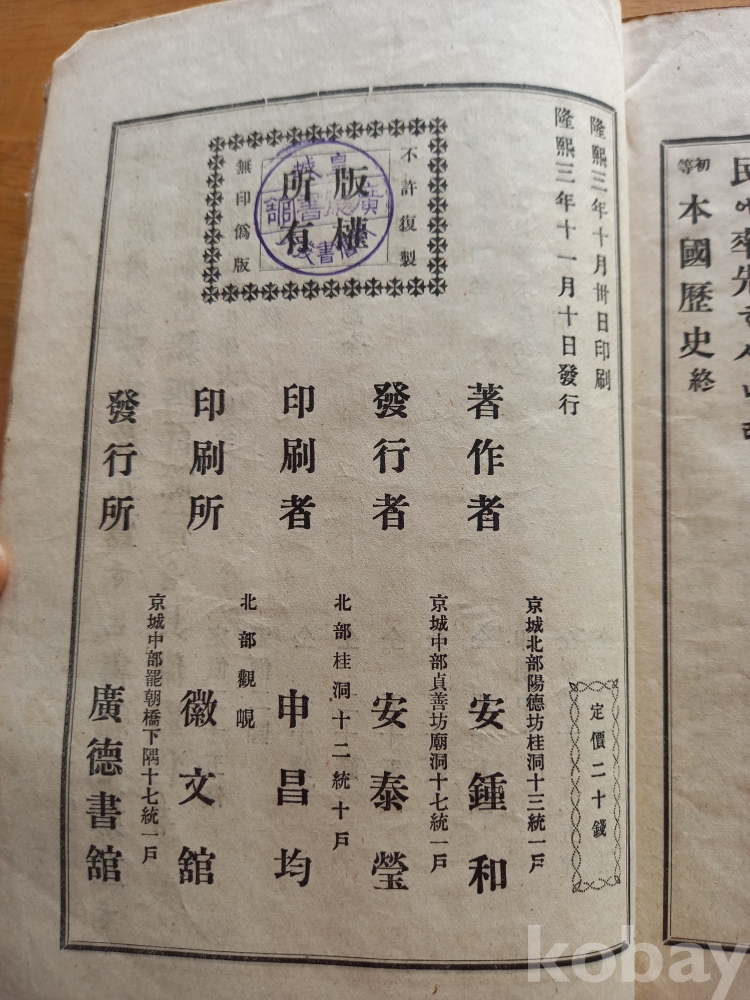 民에率先ᄒ시니
初等 本國歷史 終
隆熙三年十月卅日印刷
隆熙三年十一月十日發行
定價二十錢
不許復製
版權
所有
無印僞版
著作者
京城北部陽德坊桂洞十三統一戶
安鍾和
發行者
京城中部貞善坊廟洞十七統一戶
安泰瑩
印刷者
北部桂洞十二統十戶
申昌均
印刷所
北部觀峴
徽文舘
發行所
京城中部罷朝橋下隅十七統一戶
廣德書舘
kobay